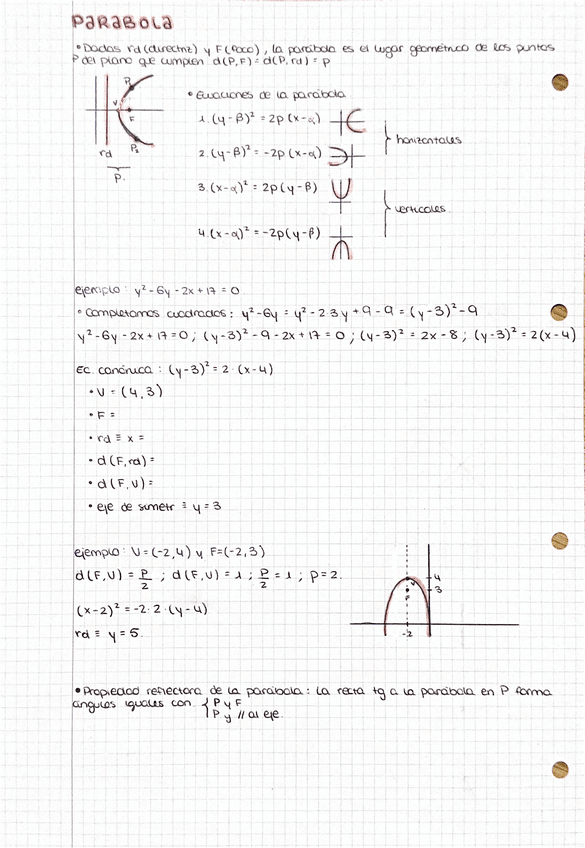 PARABOLA
• Dados rd (directriz) y F (foco), la parábola es el lugar geométrico de los puntos
P del plano que cumplen d(P,F) = d(P, rd) = p
P₁
V
F
rd
P₂
p.
• Ecuaciones de la parábola
1. (y-β)² = 2p (x-α)
2. (y-β)² = -2p (x-α)
horizontales
3. (x-α)² = 2p (y-β)
4. (x-α)² = -2p (y-β)
verticales.
ejemplo: y² - 6y - 2x + 17 = 0
• Completamos cuadrados: y² - 6y = y² - 2·3y + 9 - 9 = (y-3)² - 9
y² - 6y - 2x + 17 = 0 ; (y-3)² - 9 - 2x + 17 = 0 ; (y-3)² = 2x - 8 ; (y-3)² = 2(x-4)
Ec. canónica: (y-3)² = 2·(x-4)
• V = (4,3)
• F =
• rd ≡ x =
• d(F,rd) =
• d(F,V) =
• eje de simetr ≡ y = 3
ejemplo: V = (-2,4) y F = (-2,3)
d(F,V) = p/2 ; d(F,V) = 1 ; p/2 = 1 ; p = 2.
(x-2)² = -2·2·(y-4)
rd ≡ y = 5.
V
4
F
3
-2
• Propiedad reflectora de la parábola: La recta tg a la parábola en P forma
ángulos iguales con { P y F
P y // al eje.